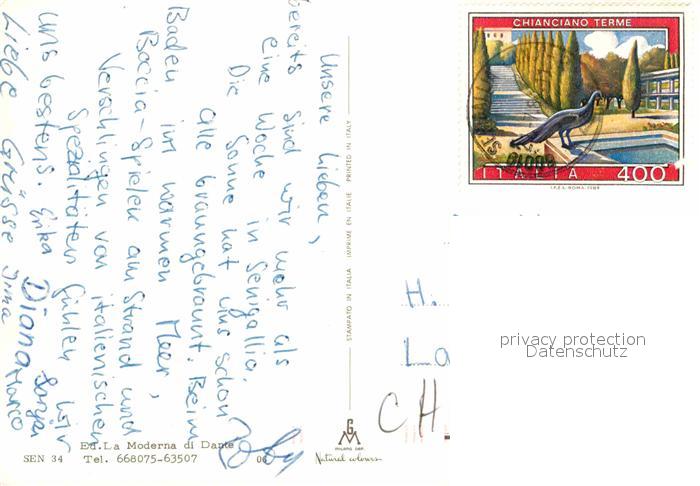 Unsere lieben,
bereits sind wir mehr als
eine Woche in Senigallia.
Die Sonne hat uns schon
alle braungebrannt. Beim
Baden im warmen Meer,
Boccia-Spielen am Strand und
Verschlingen von italienischen
Spezialitäten fühlen wir
uns bestens. Erika
Liebe Grüsse Irma
Diana
Marco
Ed. La Moderna di Dante
SEN 34 Tel. 668075-63507
STAMPATO IN ITALIA IMPRIME EN ITALIE PRINTED IN ITALY
GM
MILANO DEP.
Natural colours
CHIANCIANO TERME
ITALIA 400
I.P.Z.S. ROMA
H.
La
CH
privacy protection
Datenschutz